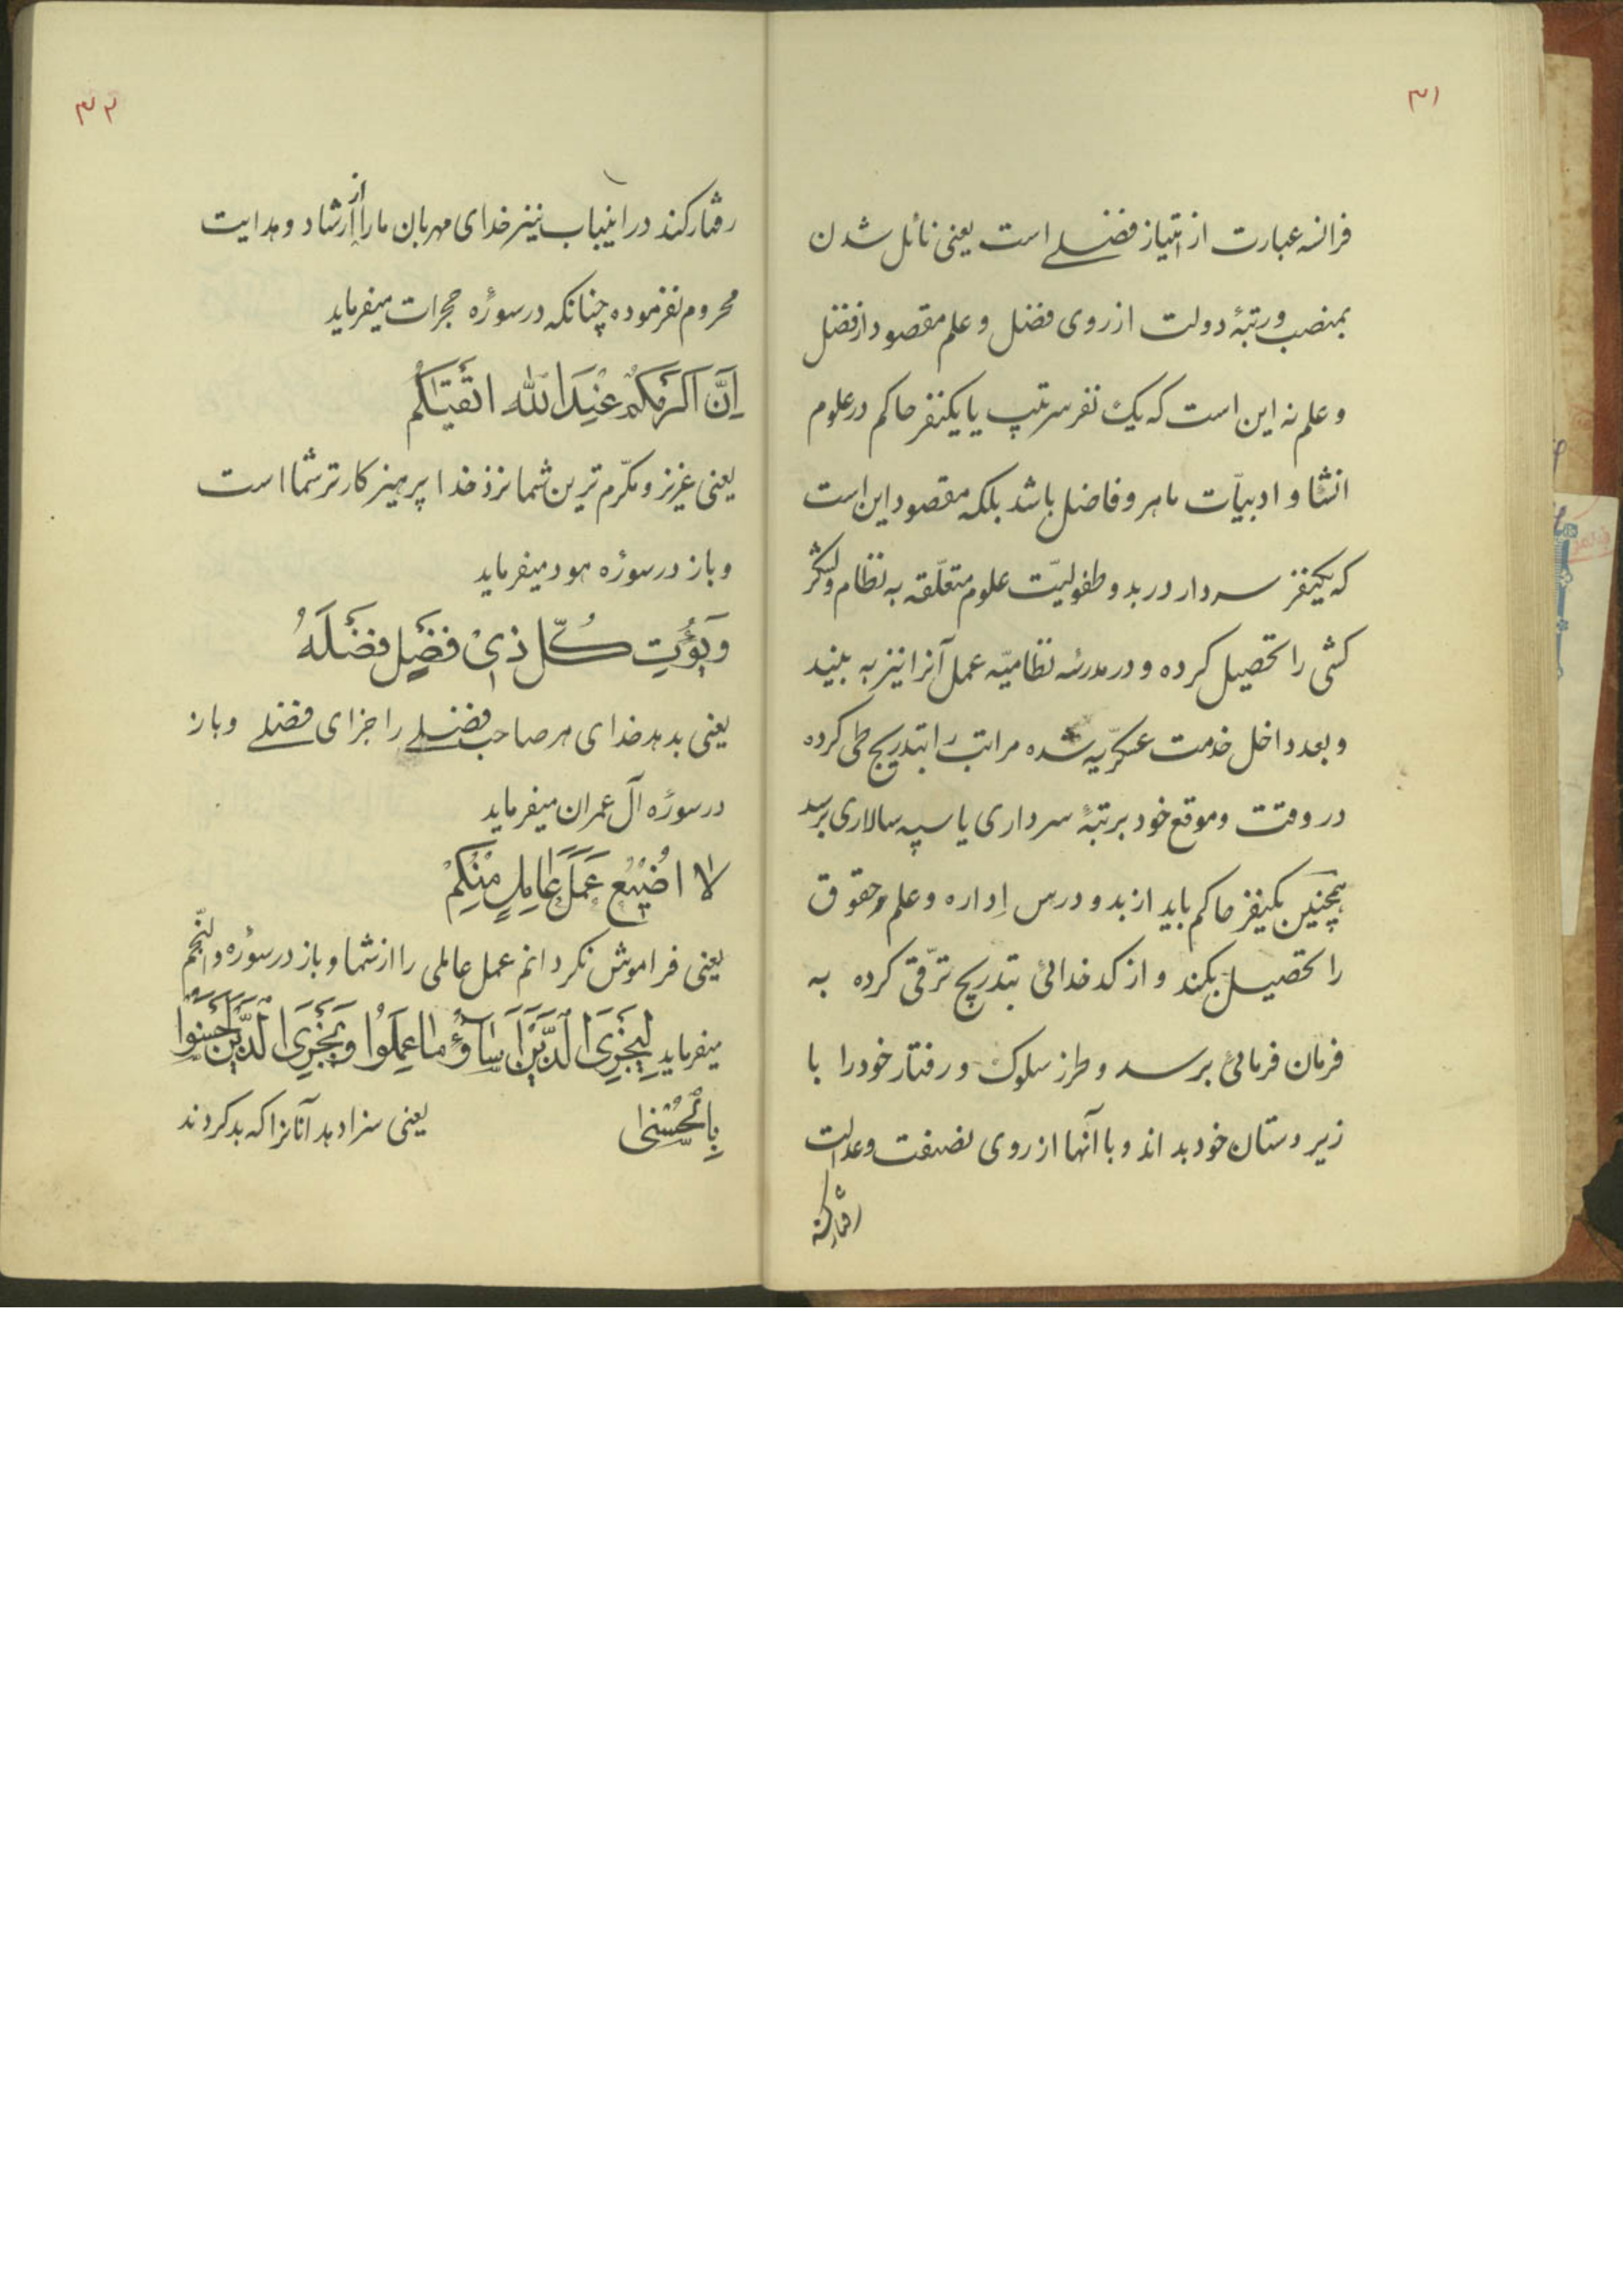 ۳۱
فرانسه عبارت از امتیاز فضلی است یعنی نائل شدن
بمنصب و رتبهٔ دولت از روی فضل و علم مقصود از فضل
و علم نه این است که یک نفر سرتیپ یا یکنفر حاکم در علوم
انشا و ادبیّات ماهر و فاضل باشد بلکه مقصود این است
که یکنفر سردار در بدو طفولیّت علوم متعلّقه به نظام و لشکر
کشی را تحصیل کرده و در مدرسه نظامیّه عمل آنرا نیز به بیند
و بعد داخل خدمت عسکرّیه شده مراتب را بتدریج طی کرده
در وقت و موقع خود برتبهٔ سرداری یا سپه سالاری برسد
همچنین یکنفر حاکم باید از بدو درس اِداره و علم حقوق
را تحصیل بکند و از کدخدائی بتدریج ترّقی کرده به
فرمان فرمائی برسد و طرز سلوک و رفتار خود را با
زیر دستان خود بداند و با آنها از روی نصفت و عدالت
رفتار کند
۳۲
رفتار کند در اینباب نیز خدای مهربان ما را از ارشاد و هدایت
محروم نفرموده چنانکه در سورهٔ حجرات میفرماید
اِنَّ اَکْرَمَکُمْ عِنْدَ اللّٰه اَتْقیٰکُمْ
یعنی عزیز و مکرّم ترین شما نزد خدا پرهیز کارتر شما است
و باز در سورهٔ هود میفرماید
وَ یُؤْتِ کُلّ ذی فَضْلٍ فَضْلَهُ
یعنی بدهد خدای هر صاحب فضلی را جزای فضلی و باز
در سورهٔ آل عمران میفرماید
لا اُضیٖعُ عَمَلَ عٰامِلٍ مِنْکُمْ
یعنی فراموش نکردانم عمل عاملی را از شما و باز در سورهٔ والنّجم
میفرماید لِیَجْزِیَ الَّذینَ اَسٰآؤُا مٰا عَمِلُوا وَ یَجْزِیَ الَّذینَ اَحْسَنُوا
بِالْحُسْنیٰ یعنی سزا دهد آنانرا که بد کردند